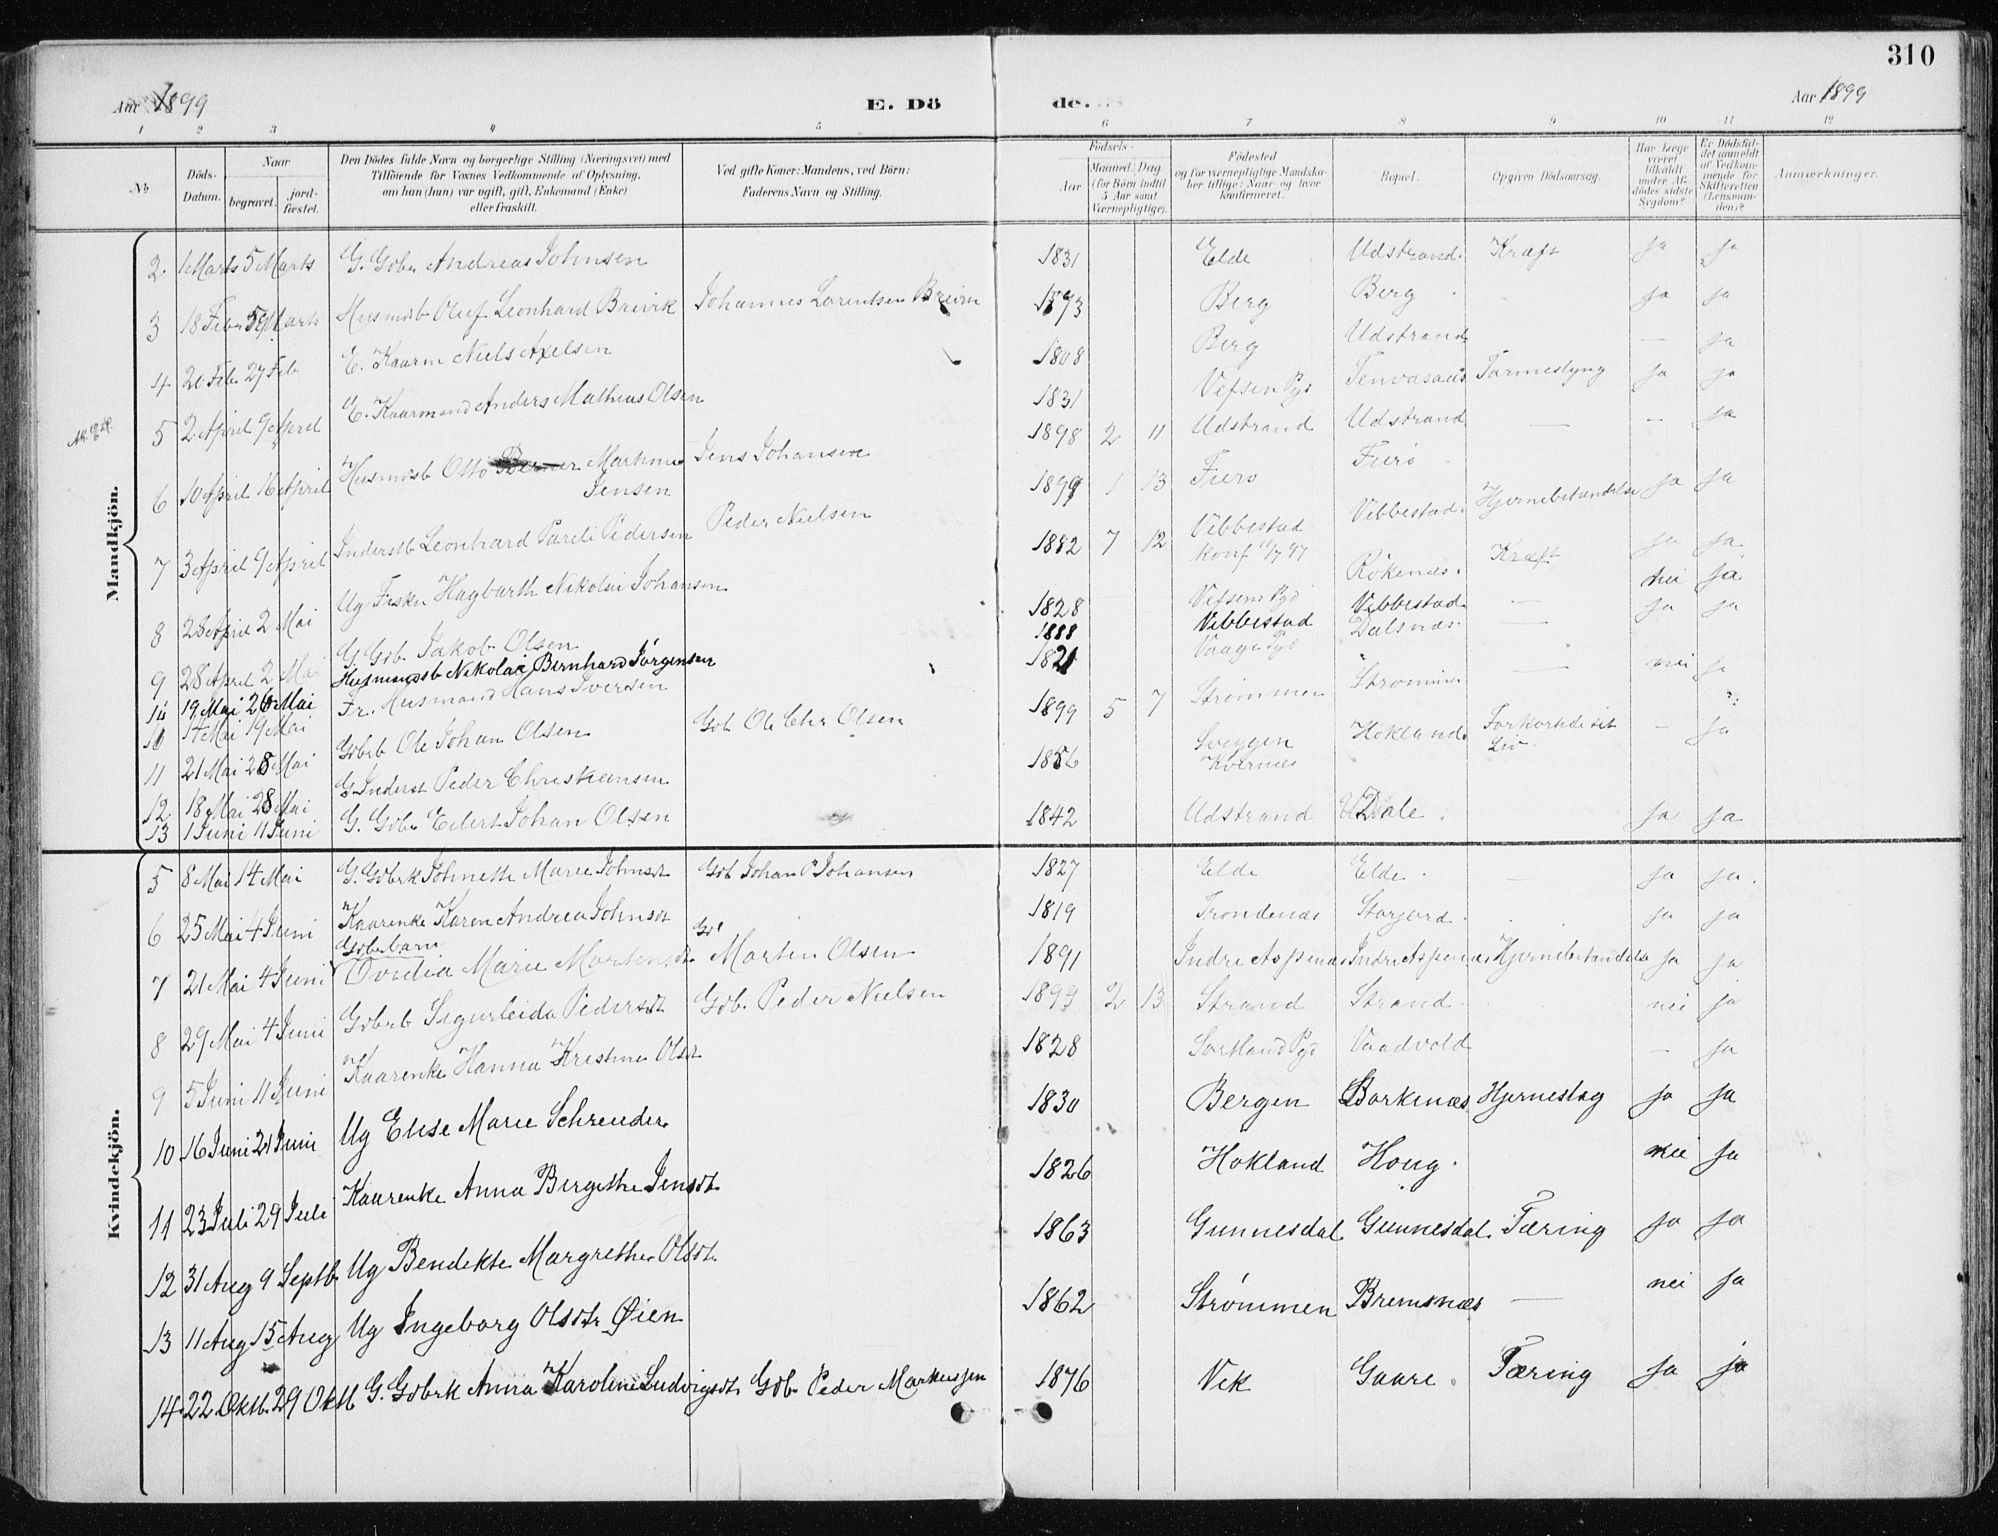 310
Aar 1899 E. Dö de. Aar 1899
1 2 3 4 5 6 7 8 9 10 11 12
No Döds-Datum. Naar begravet. jord-fæstet. Den Dödes fulde Navn og borgerlige Stilling (Næringsvei) med Tilföiende for Voxnes Vedkommende af Oplysning, om han (hun) var ugift, gift, Enkemand (Enke) eller fraskilt. Ved gifte Koner: Mandens, ved Börn: Faderens Navn og Stilling. Födsels- Aar Maaned. Dag. (for Börn indtil 5 Aar samt Værnepligtige). Födested og for værnepligtige Mandskaber tillige: Naar og hvor konfirmeret. Bopæl. Opgiven Dödsaarsag. Har læge været tilkaldt under Afdödes sidste Sygdom? Er Dödsfaldet anmeldt af Vedkommende for Skifteretten (Lensmanden)? Anmærkninger.
Mandkjön.
2. 1 Marts 5 Marts G. Gbr. Andreas Johnsen 1831 Elde Udstrand. Kræft ja ja
3 18 Feb 5 Marts Husmdsb Oluf Leonhard Breivik Johannes Lorentsen 1893 Berg Berg ja ja
4 20 Feb. 27 Feb E. Kaarm Niels Axelsen 1808 Berg Udstrand — ja
5 2 April 9 April E. Kaarmand Anders Mathias Olsen 1831 Vefsen Pgd Tarmeslyng ja ja
1898 2 11 Udstrand Udstrand — — ja
6 10 April 16 April Husmdsb Otto Martinus Jensen Jens Johansen 1899 1 13
7 3 April 9 April Inderstb Leonhard Pareli Pedersen Peder Nielsen Vebbestad Vebbestad. Hjernebetændelse ja ja
1882 7 12 konf 11/7 97 Rökenæs. Kræft ja ja
8 28 April 2 Mai Ug Fisker Hagbarth Nikolai Johansen 1828 Vefsens Pgd Vebbestad. — nei ja
9 28 April 2 Mai G. Gbr. Jakob Olsen 1888 Vebbestad Dalsnæs. — ja ja
14 19 Mai 26 Mai Husmandsb Nikolai Bernhard Jörgensen 1821 Vaage Pgd
10 14 Mai 19 Mai Fr. Husmand Hans Iversen Strømmen — nei ja
11 21 Mai 28 Mai Gbrb Ole Johan Olsen Gbr Ole Chr Olsen 1899 5 7 Strømmen Hokland. Liv — ja
12 18 Mai 28 Mai G. Inderst Peder Christiansen 1856 Kvernæs
13 1 Juni 11 Juni G. Gbr Edert Johan Olsen 1842 Udstrand Dale. ja ja
Kvindekjön.
5 8 Mai 14 Mai G. Gbrk Johnette Marie Johnsdt Gbr Johan P Johansen 1827 Elde Elde. — ja ja.
6 25 Mai 4 Juni Kaarenke Karen Andrea Johnsdt 1819 Trondenæs Storjord. ja ja
7 21 Mai 4 Juni Gbrbarn Ovidia Marie Mortensdt Gbr Morten Olsen 1891 Indre Aspenæs Indre Aspenæs Hjernebetændelse ja ja
8 29 Mai 4 Juni Gbrb Sigurleida Pedersdt Gbr. Peder Nielsen 1899 2 13 Strand Strand. nei ja
9 5 Juni 11 Juni Kaarenke Hanna Kristine Olsdt 1828 Sortland Pgd Vaadvold — ja
10 16 Juni 21 Juni Ug Elise Marie Schreuder 1830 Bergen Borkenæs Hjerneslag ja ja
11 23 Juli 29 Juli Kaarenke Anna Bergithe Jensdt 1826 Hokland Houg. nei ja
12 31 Aug 9 Septb. Ug Bendikte Margrethe Olsdt 1863 Gunnesdal Gunnesdal. Tæring ja ja
13 11 Aug 15 Aug Ug Ingeborg Olsdtr Øien 1862 Strømmen Bremsnæs — nei ja
14 22 Oktb. 29 Oktb G. Gbrk Anna Karoline Ludvigsdt Gbr Peder Markussen 1876 Vik Gaare. Tæring ja ja